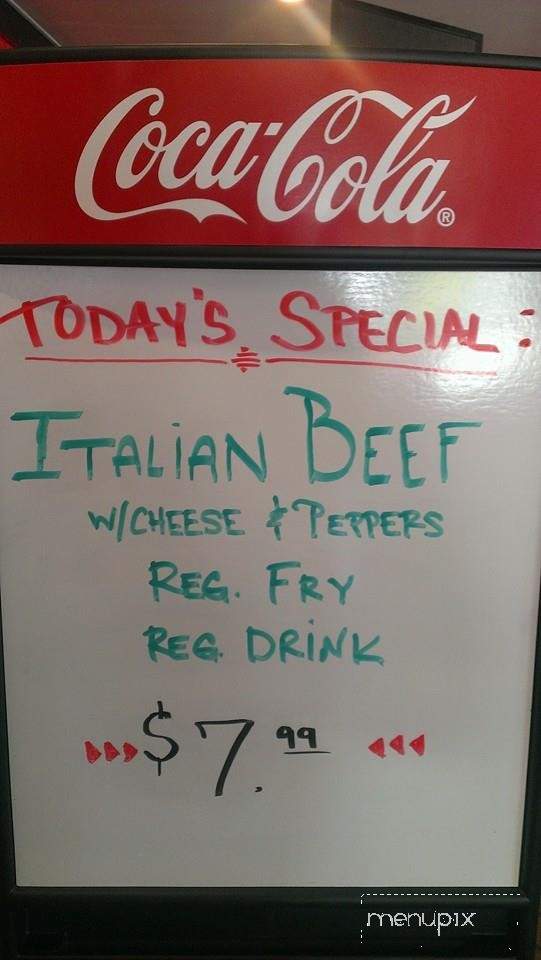 Coca-Cola®
TODAY'S SPECIAL:
ITALiAN BEEF
W/CHEESE & PEPPERS
REG. FRY
REG. DRiNK
$7.99
menupix